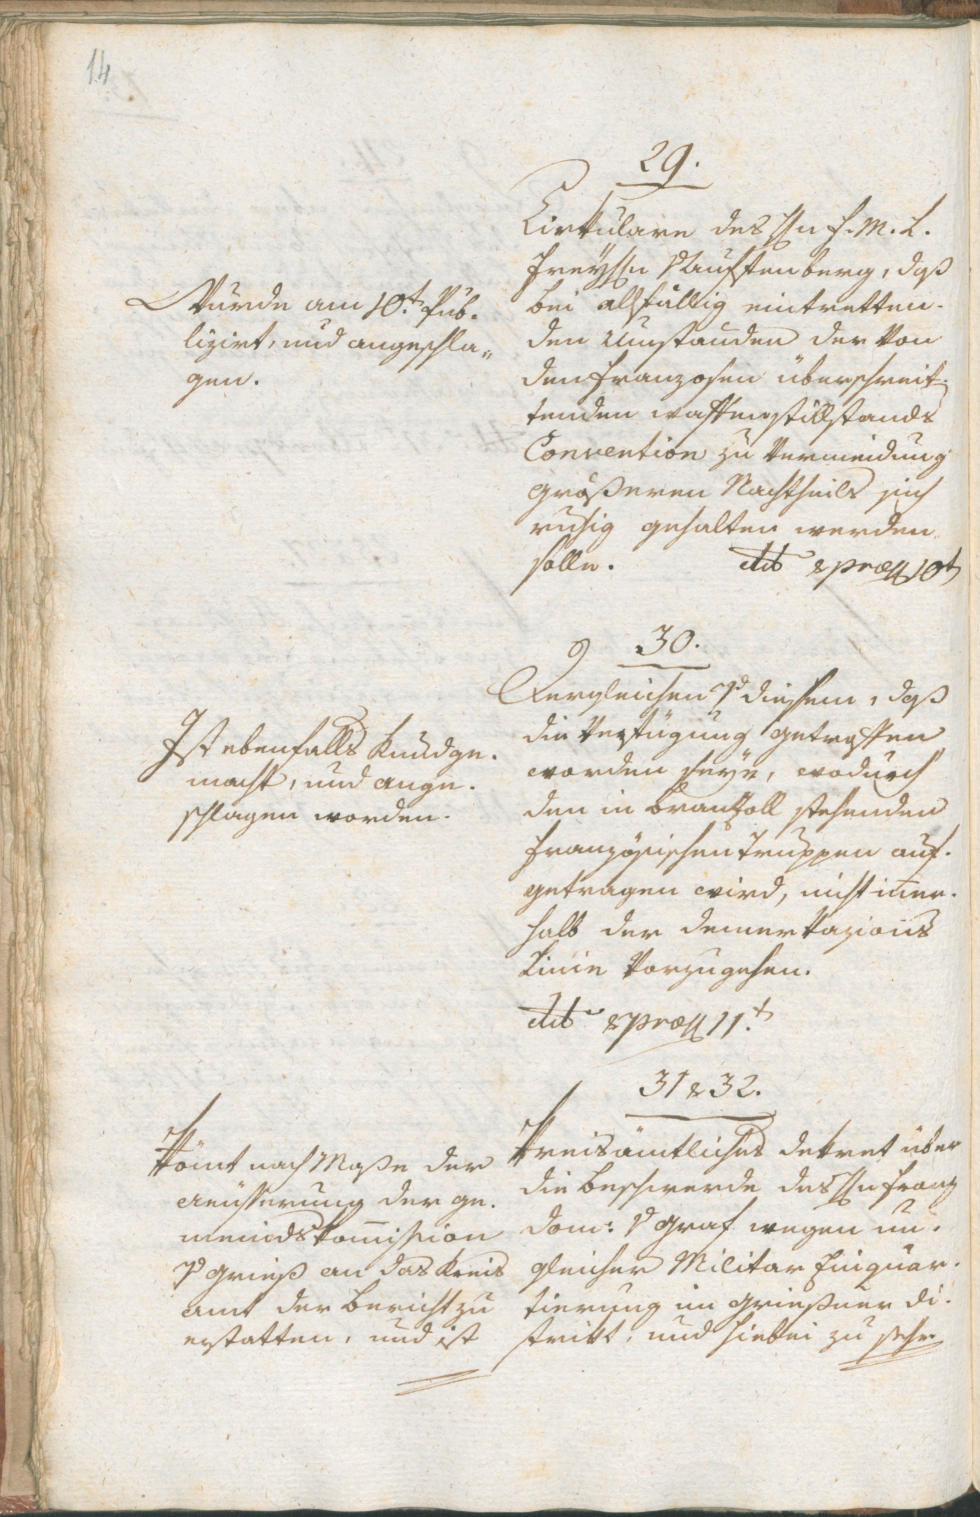 14
29.
Cirkulare des Hn F. M. L.
Freyhn v Aufstenberg, daß
bei allfällig eintretten-
den Umständen der von
den Franzosen überschreit-
tenden waffenstillstands
Convention zu Vermeidung
größeren Nachtheils sich
ruhig gehalten werden
solle. dto & præs 10t
Wurde am 10t. Pub-
lizirt, und angeschla-
gen.
30.
Dergleichen v diesem, daß
die Verfügung getroffen
worden seye, wodurch
den in Brantzoll stehenden
französischen Truppen auf-
getragen wird, nicht inner-
halb der demerkazions
Linie vorzugehen.
dto & præs 11.t
Ist ebenfalls kundge-
macht, und ange-
schlagen worden.
31 & 32.
Kreisämtliches dekret über
die Beschwerde des Hn Franz
dom: v Graf wegen un-
gleicher Militar Einquar-
tierung im Grießner di-
strikt, und hiebei zu sehr
Kömt nach Maße der
aeüsserung der ge-
meindskommission
v Grieß an das Kreis
amt der Bericht zu
erstatten, und ist